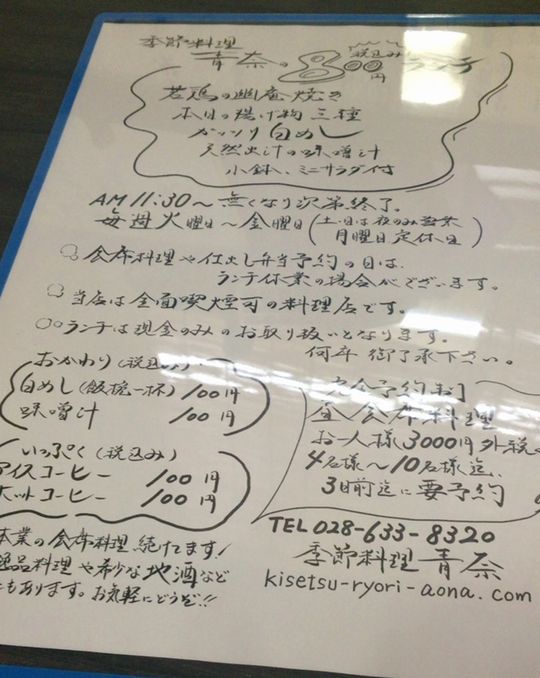 季節料理
青奈の800円ランチ
税込み
若鶏の幽庵焼き
本日の揚げ物 三種
ガッツリ白めし
天然出汁の味噌汁
小鉢、ミニサラダ付
AM 11:30〜無くなり次第終了。
毎週火曜日〜金曜日(土・日は夜のみ営業 月曜日定休日)
会席料理や仕出し弁当予約の日は、
ランチ休業の場合がございます。
当店は全面喫煙可の料理店です。
ランチは現金のみのお取り扱いとなります。
何卒 御了承下さい。
おかわり(税込み)
白めし(飯碗一杯) 100円
味噌汁 100円
いっぷく(税込み)
アイスコーヒー 100円
ホットコーヒー 100円
完全予約制
昼会席料理
お一人様3000円外税
4名様〜10名様迄、
3日前迄に要予約
TEL 028-633-8320
季節料理 青奈
kisetsu-ryori-aona.com
本業の会席料理続けてます!
逸品料理や希少な地酒など
にもあります。お気軽にどうぞ!!